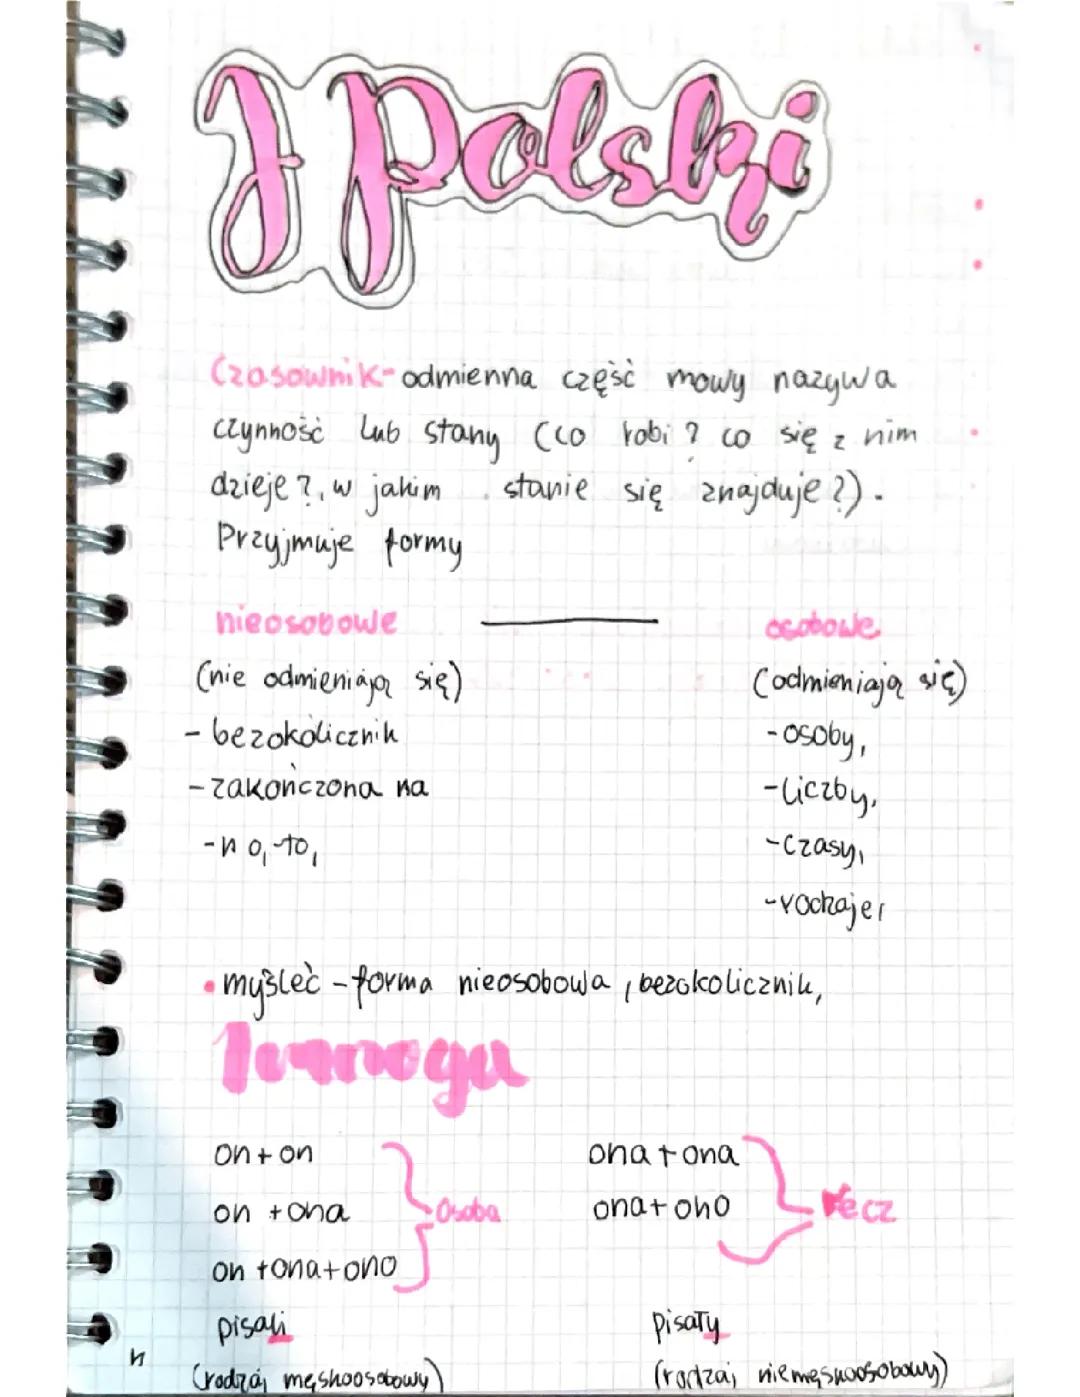 J Polski
Czasownik - odmienna część mowy nazywa
czynność lub stany (co robi? co się z nim
dzieje?, w jakim stanie się znajduje?).
Przyjmuje formy
nieosobowe — osobowe
(nie odmieniają się) (odmieniają się)
- bezokolicznik - osoby,
- zakończona na - liczby,
- no, -to, - czasy,
- rodzaje,
• myśleć - forma nieosobowa, bezokolicznik,
on + on ona + ona
on + ona Osoba ona + ono rzecz
on + ona + ono
pisali pisały
(rodzaj męskoosobowy) (rodzaj niemęskoosobowy)